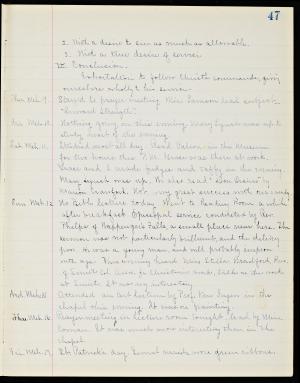 47
2. With a desire to sin as much as allowable.
3. With a true desire of service
IV Conclusion.
Exhortation to follow Christ's commands, give
ourselves wholly to his service
Thur. Mch. 9. prayer meeting. Miss lead subject-
"Renewed Strength".
Nothing going on this evening. Mary Lynch was up to
study most of the evening.
Sat. Mch. 11. all day. Read Cicero in the Museum
for two hours this P.M. Grace was there at work.
Grace and I made fudges and taffy in the evening.
Mary Lynch was up. We also read "Don Orsino" by
Marion Crawford. Not very great success with our candy.
Sun. Mch. 12. No Bible lecture today. Went to Reading Room a while
after breakfast. Episcopal service conducted by Rev.
Phelps of Wappinger's Falls, a small place near here. The
sermon was not particularly brilliant, and the delivery
poor. He was a young man, and will probably improve
with age. This evening heard Mary Stella Bradford, Pres.
of Smith Col. Assoc. for Christian Work, tell us the work
at Smith. It was very interesting.
Attended an art lecture by Prof. Van Ingen in the
chapel this evening. It was on painting.
Thur Mch. 16. Prayer meeting in lecture room tonight, lead by Miss
It was much more interesting than in the
chapel.
Fri. Mch. 17. St. Patrick's day. Several maids wore green ribbons.